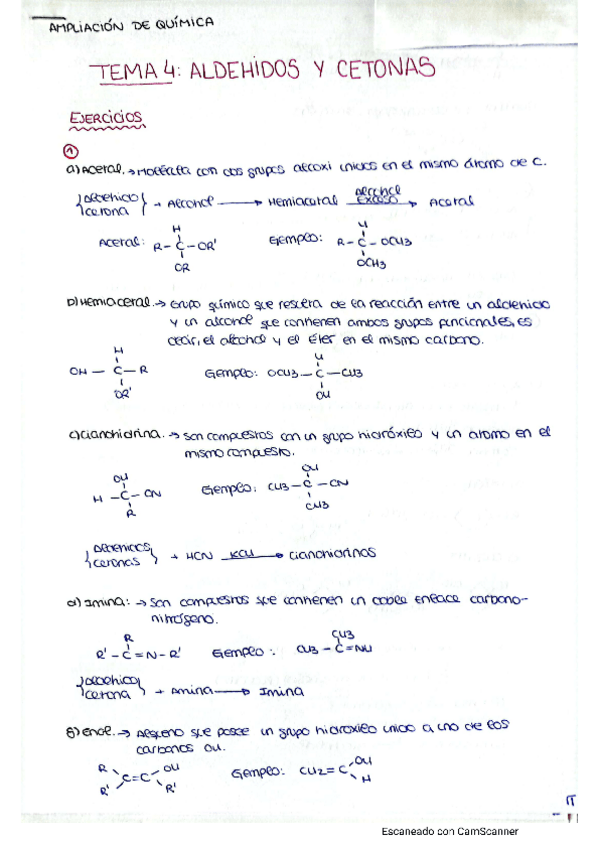 AMPLIACIÓN DE QUÍMICA
TEMA 4: ALDEHIDOS Y CETONAS
EJERCICIOS
①
a) Acetal. → Molécula con dos grupos alcoxi unidos en el mismo átomo de C.
{aldehido cetona} + Alcohol → Hemiacetal alcohol exceso → Acetal
Acetal: R-C-OR' H OR Ejemplo: R-C-OCH3 H OCH3
b) Hemiacetal. → Grupo químico que resulta de la reacción entre un aldehido
y un alcohol que contienen ambos grupos funcionales, es
decir, el alcohol y el éter en el mismo carbono.
OH-C-R H OR' Ejemplo: OCH3-C-CH3 H OH
c) cianohidrina. → Son compuestos con un grupo hidróxilo y un átomo en el
mismo compuesto.
H-C-CN OH R Ejemplo: CH3-C-CN OH CH3
{Aldehidos cetonas} + HCN KCN → cianohidrinas
d) Imina: → Son compuestos que contienen un doble enlace carbono-
nitrógeno.
R'-C=N-R' R Ejemplo: CH3-C=NH CH3
{aldehido cetona} + Amina → Imina
g) enol. → Alqueno que posee un grupo hidroxilo unido a uno de los
carbonos OH.
R R' C=C OH R' Ejemplo: CH2=C OH H
Escaneado con CamScanner